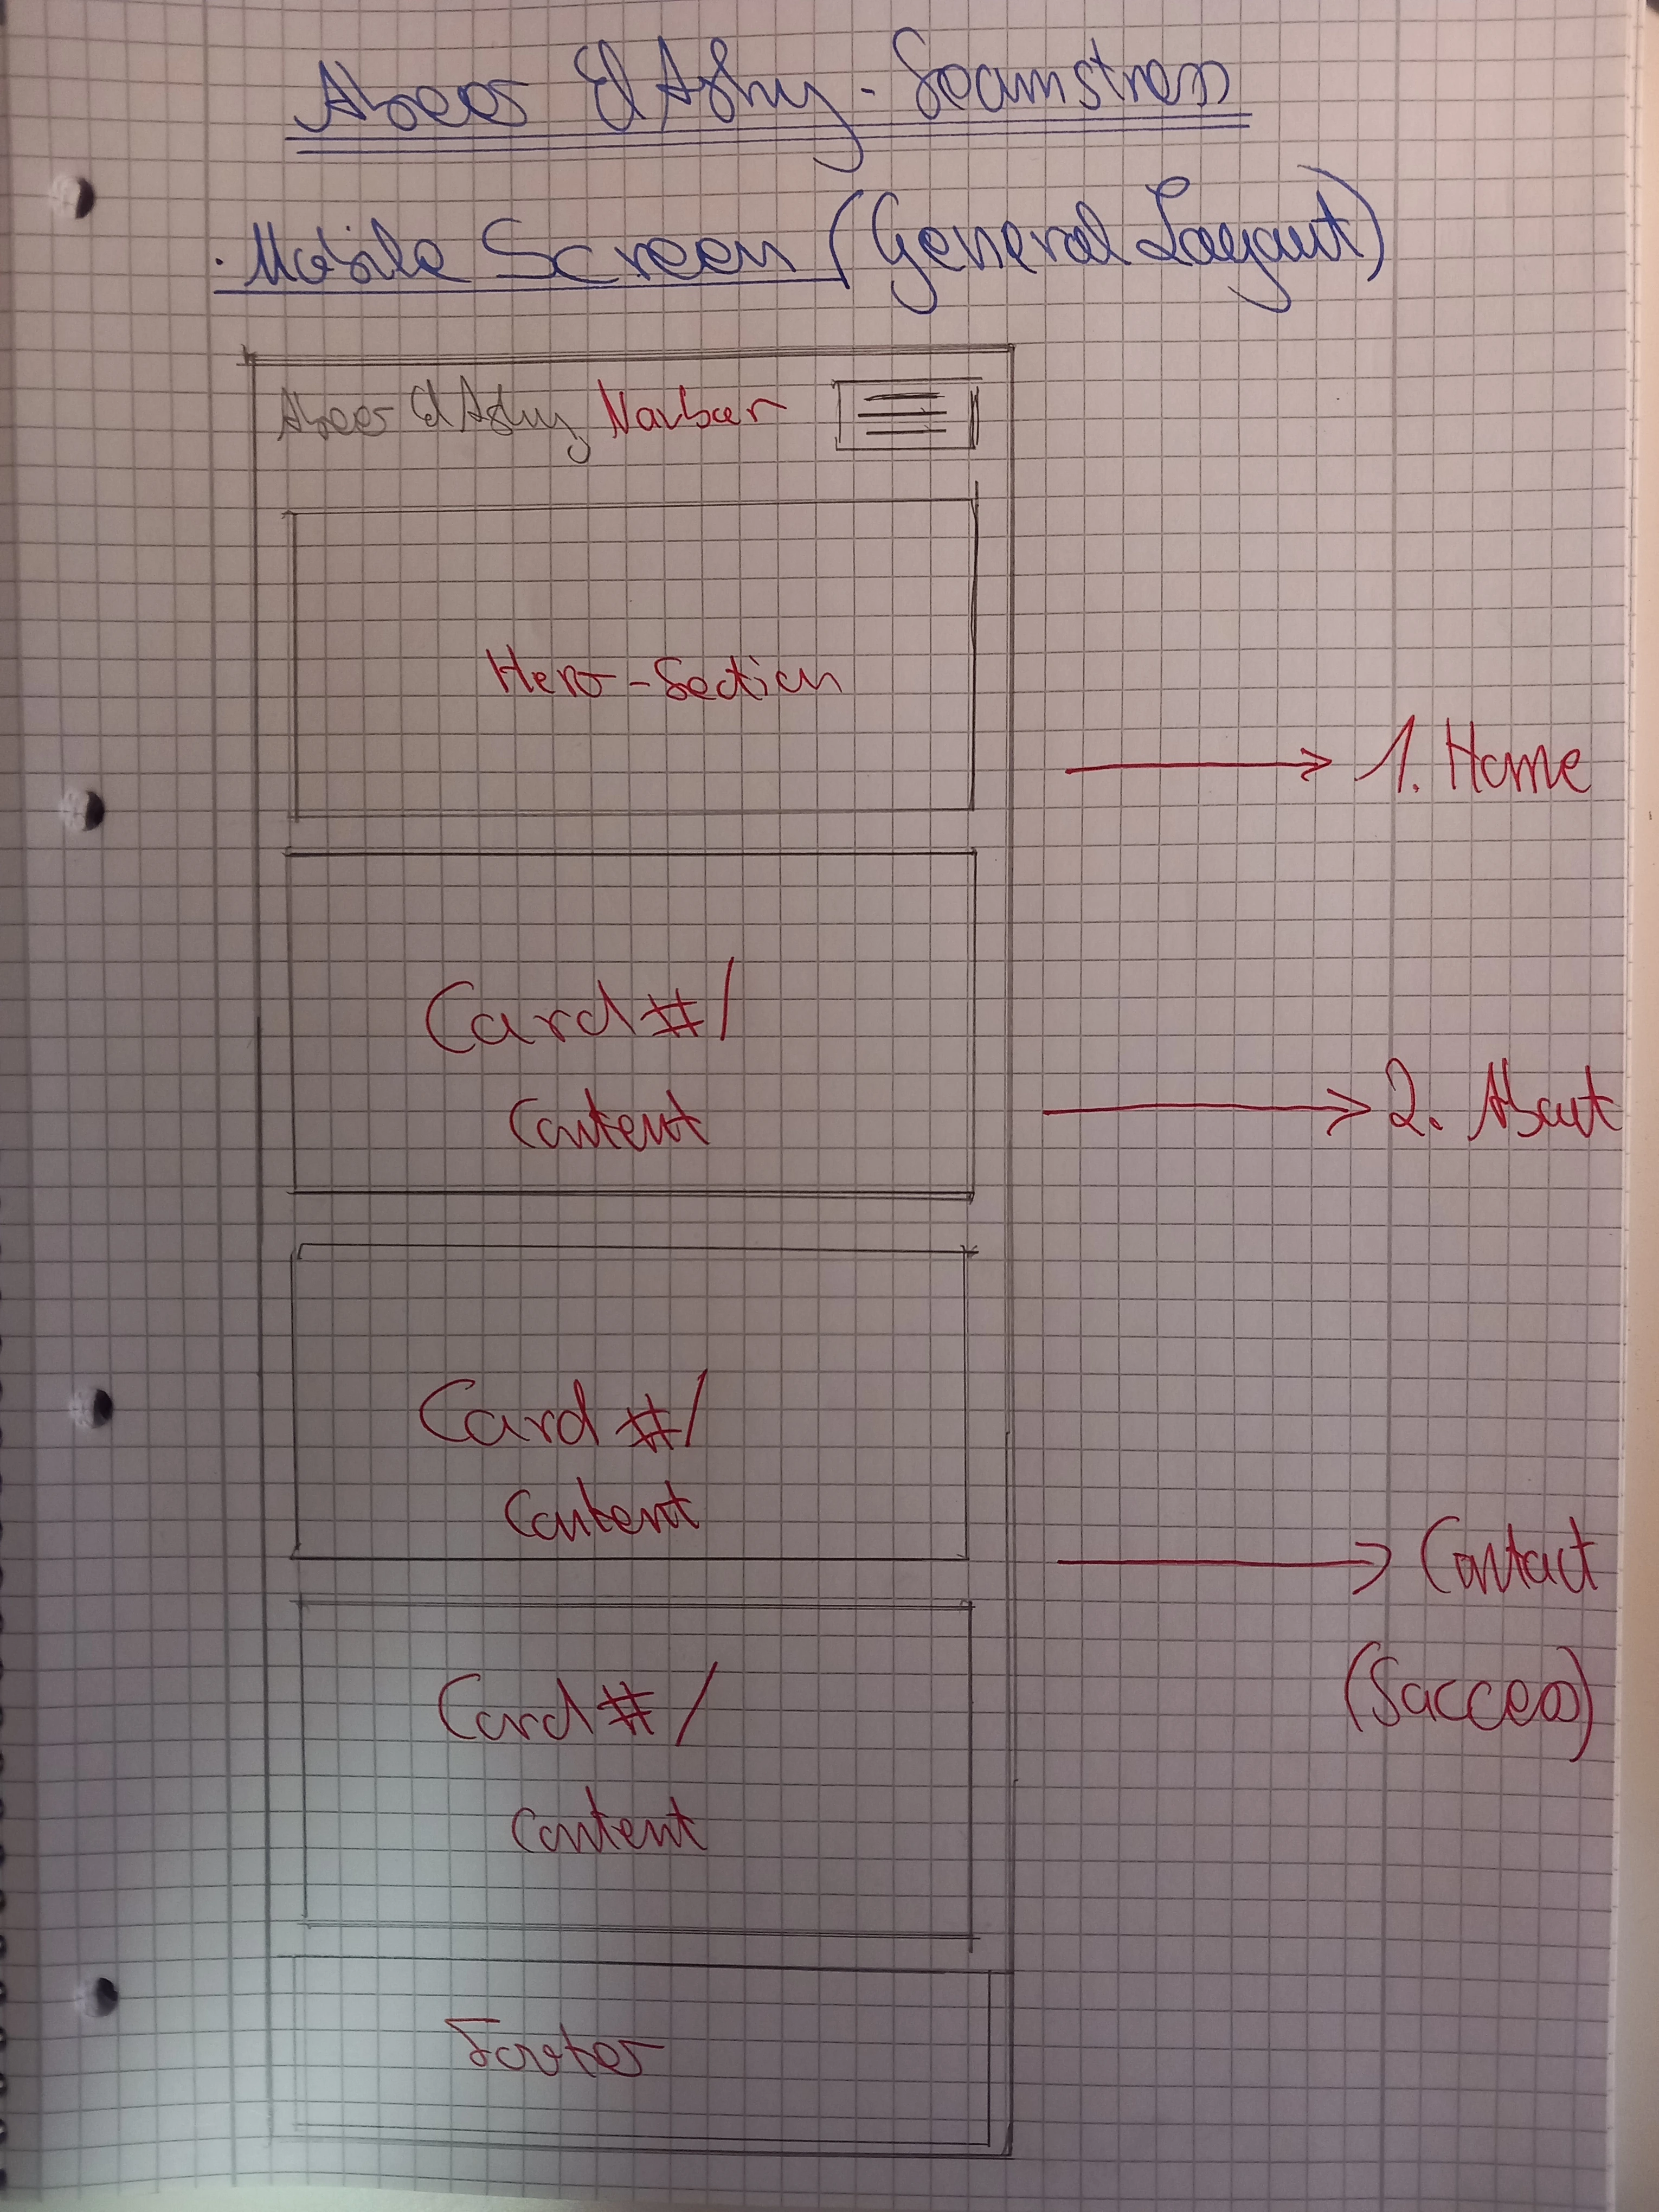 Abeer El Ashy - Seamstress
. Mobile Screen (General Layout)
Abeer El Ashy Navbar
Hero-Section
1. Home
Card #/
Content
2. About
Card #/
Content
Contact
(Success)
Card #/
Content
Footer